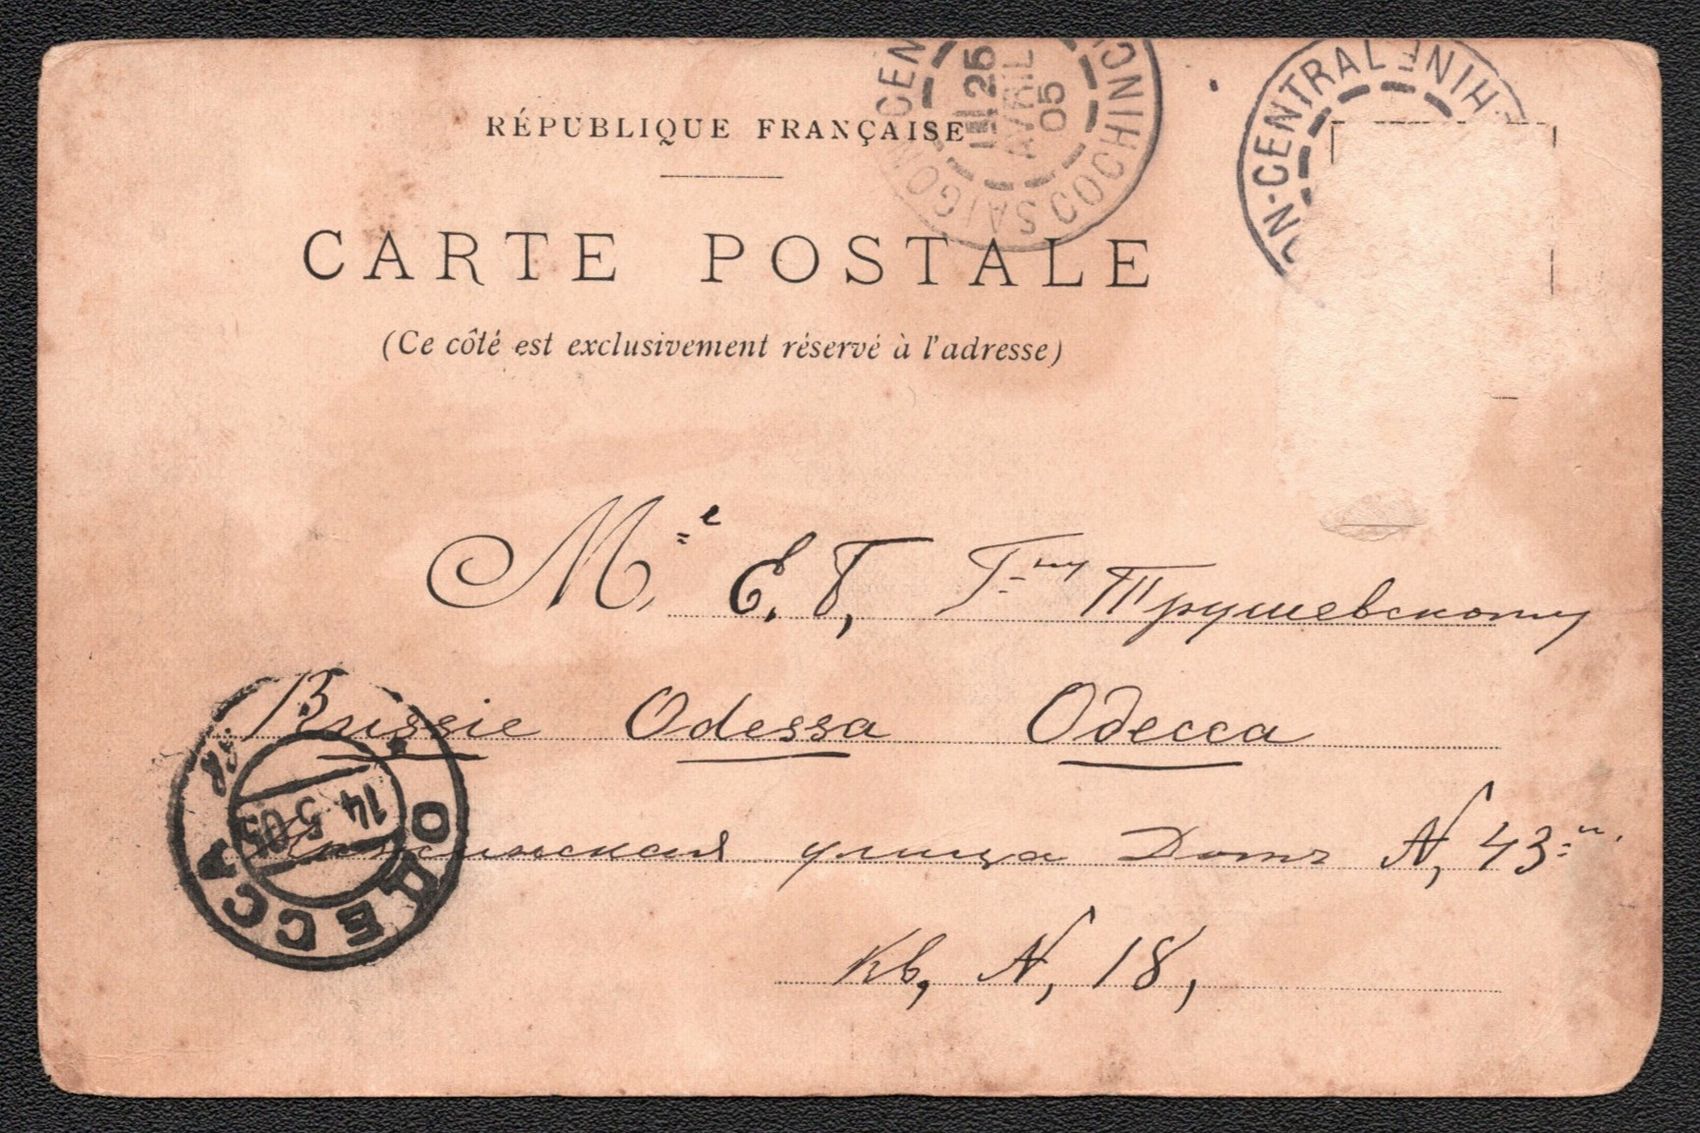 RÉPUBLIQUE FRANÇAISE
SAIGON-CENTRAL COCHINCHINE
25
AVRIL
05
CARTE POSTALE
(Ce côté est exclusivement réservé à l'adresse)
M.e Е. Г, Г-ну Трушевскому
Russie Odessa Одесса
улица Домъ N, 43
кв, N, 18,
ОДЕССА
14 5 05